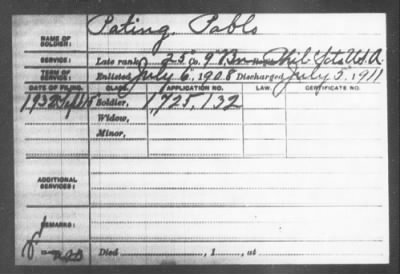 NAME OF SOLDIER: Pating, Pablo
SERVICE: Late rank, 25 Co. 9 Bn Phil Scts U.S.A.
TERM OF SERVICE: Enlisted July 6, 1908 Discharged July 5, 1911
DATE OF FILING. CLASS. APPLICATION NO. LAW. CERTIFICATE NO.
1932 Soldier, 1,725,132
Widow,
Minor,
ADDITIONAL SERVICES:
REMARKS:
Died , 1 , at